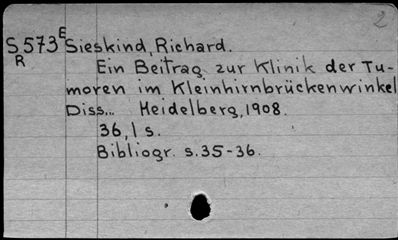 2
E
S573 Sieskind, Richard.
R
Ein Beitrag zur Klinik der Tu-
moren im Kleinhirnbrückenwinkel
Diss... Heidelberg, 1908.
36, 1 s.
Bibliogr. s.35-36.